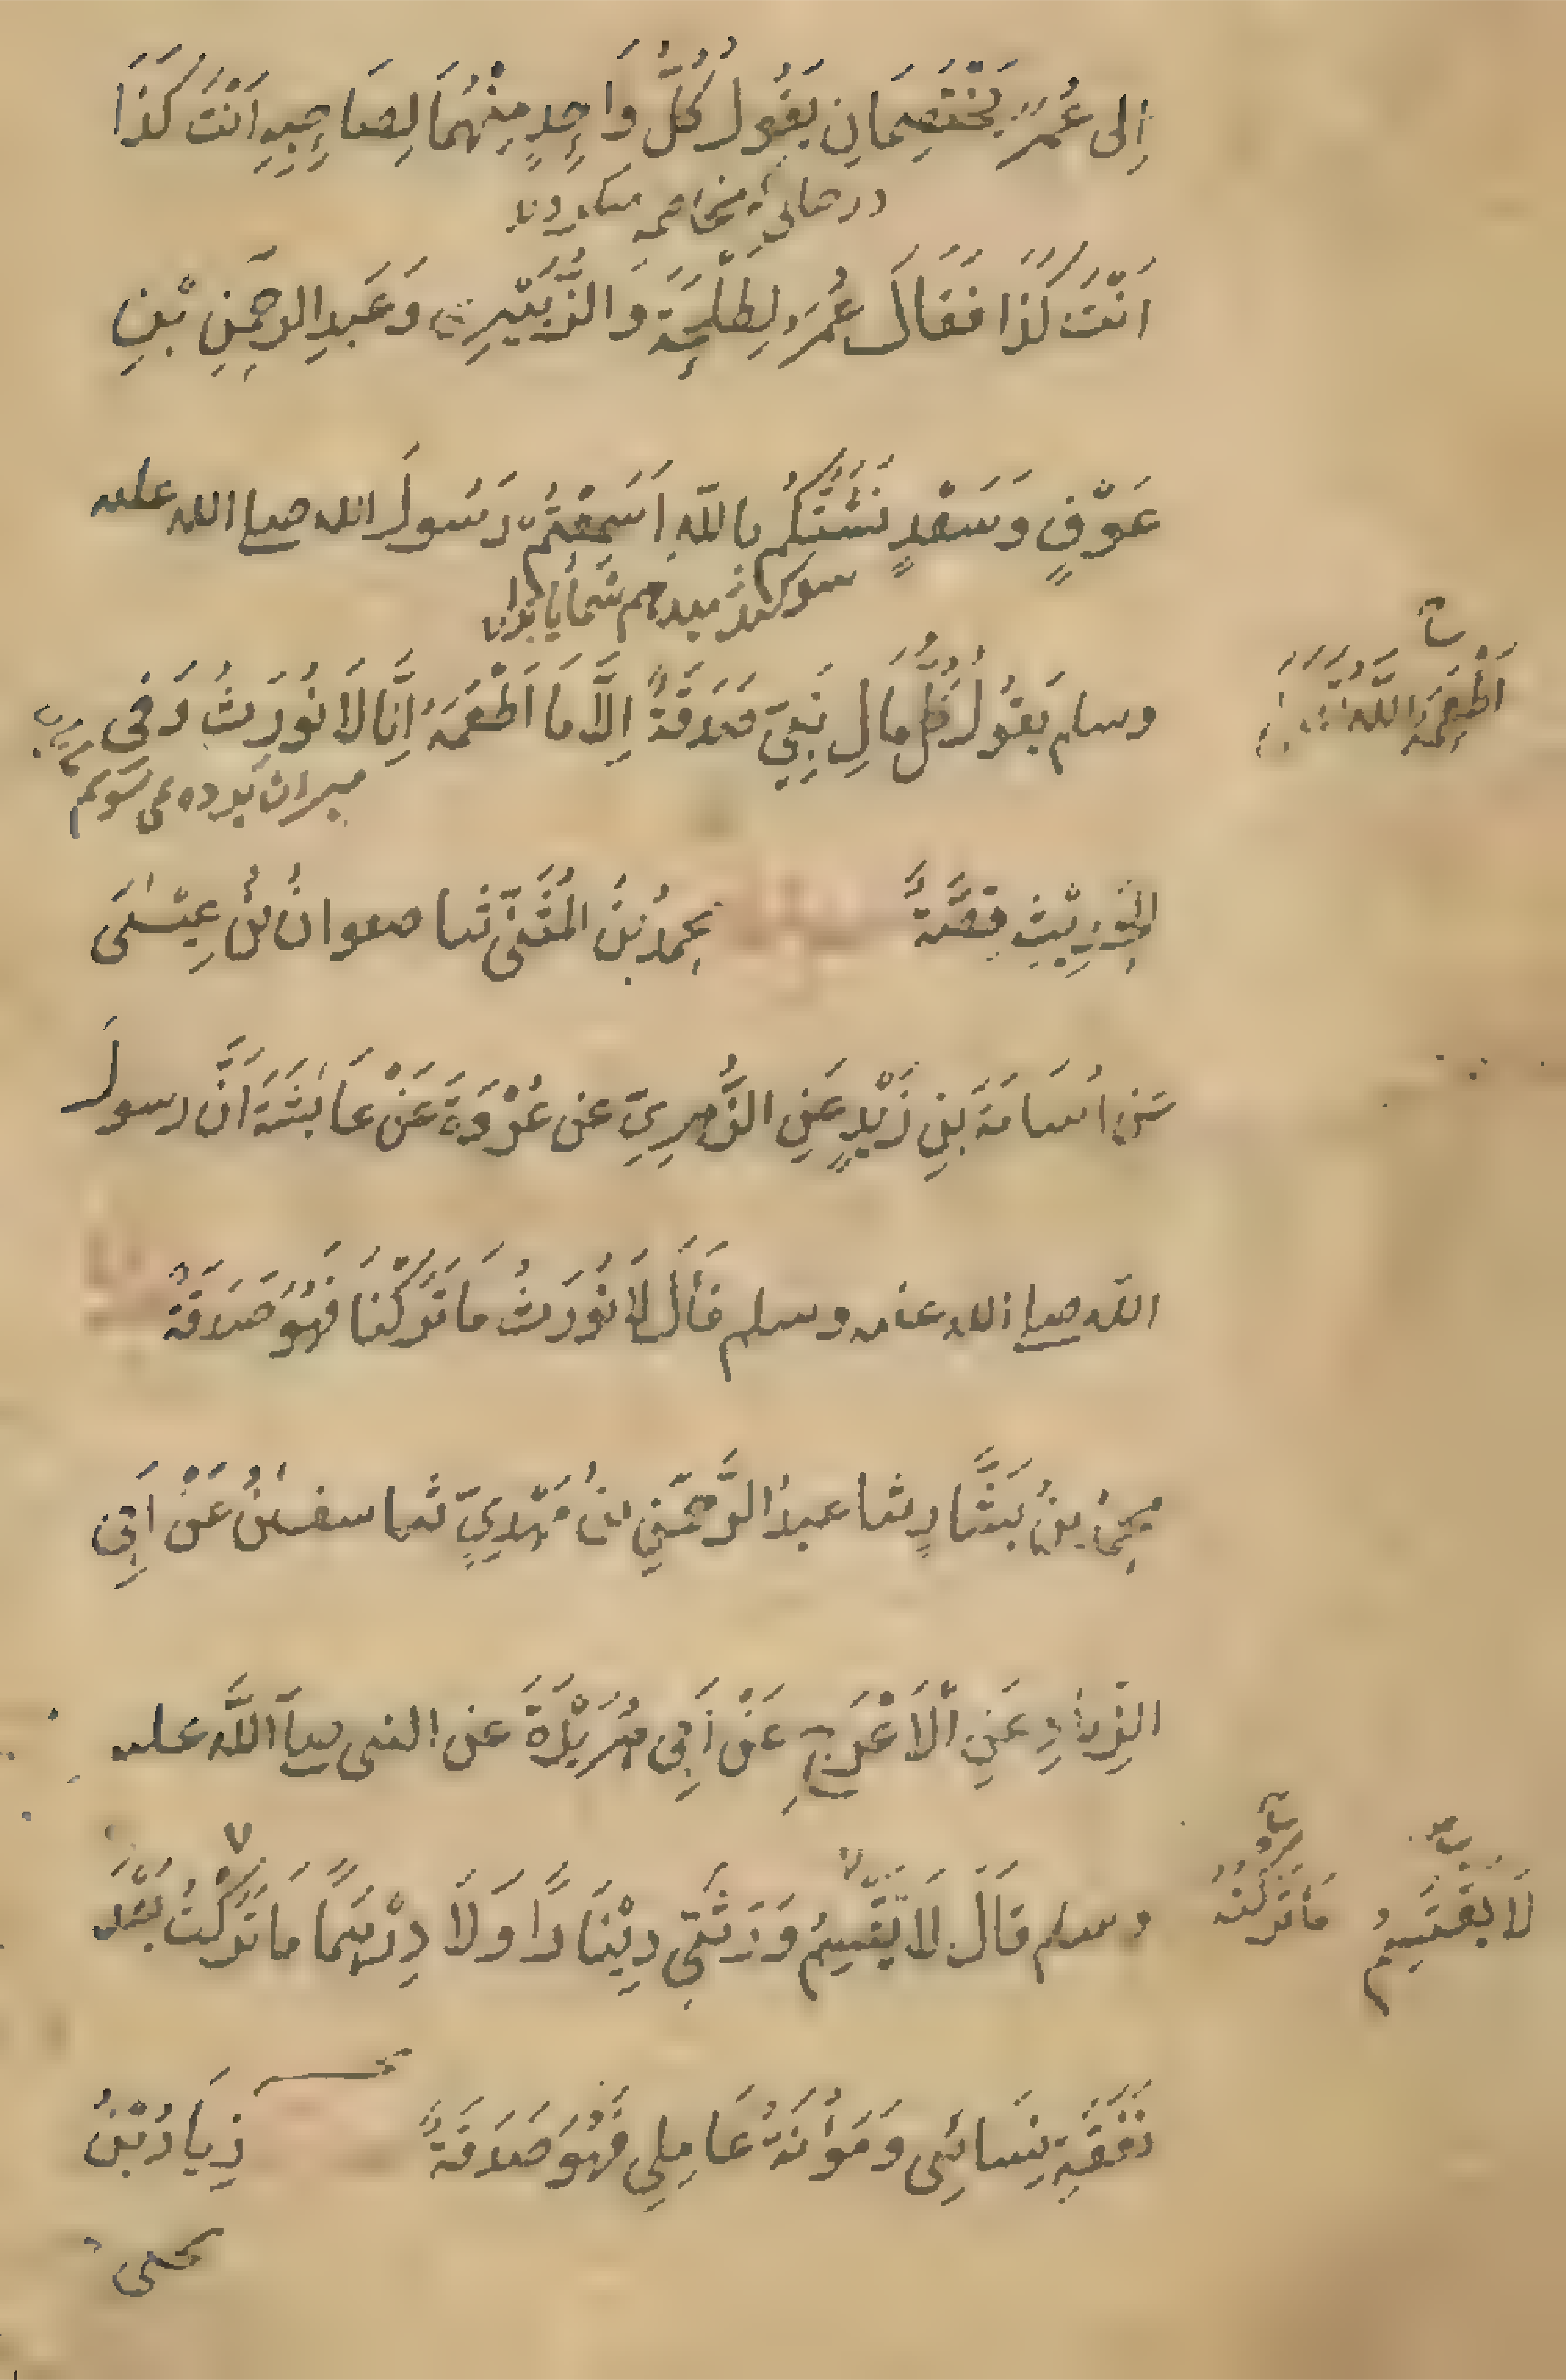 اِلى عُمَرَ يَخْتَصِمَانِ يَقُولُ كُلُّ وَاحِدٍ مِنْهُمَا لِصَاحِبِهِ اَنْتَ كَذَا
در حالی که مخاصمه میکردند
اَنْتَ كَذَا فَقَالَ عُمَرُ لِطَلْحَةَ وَالزُّبَيْرِ وَعَبدِ الرحمٰنِ بْنِ
عَوْفٍ وَسَعْدٍ نَشَدْتُكُمْ بِاللّٰهِ اَسَمِعْتُمْ رَسُولَ الله صلى الله عليه
سوکند میدهم شما را بخدا
وسلم يَقُولُ كُلُّ مَالِ نَبِيٍّ صَدَقَةٌ اِلَّا مَا اَطْعَمَهُ اِنَّا لَا نُوْرَثُ وَفِي
اَطْعَمَهُ اللَّهُ
میراث برده نمی شویم
الحَدِيْثِ قِصَّةٌ محمدُ بنُ المُثَنّٰى ثنا صفوانُ بْنُ عِيْسٰى
عَن اُسَامَةَ بنِ زَيْدٍ عَنِ الزُّهرِيِّ عن عُرْوَةَ عَنْ عَائِشَةَ اَنَّ رسولَ
الله صلى الله عليه وسلم قَالَ لَا نُوْرَثُ مَا تَرَكْنَا فَهُوَ صَدَقَةٌ
محمدُ بنُ بَشَّارٍ ثنا عبدُ الرَّحمٰنِ بنُ مَهْدِيٍّ ثنا سفيٰنُ عَنْ اَبِى
الزِّنَادِ عَنِ الْاَعْرَجِ عَنْ اَبِى هُرَيْرَةَ عن النبى صلى اللَّه عليه
وسلم قَالَ لَا يَقْسِمُ وَرَثَتِى دِيْنَارًا وَلَا دِرْهَمًا مَا تَرَكْتُ بَعْدَ
لَا يَقْتَسِمُ
مَا تَرَكْتُهُ
نَفَقَةِ نِسَائِى وَمَؤُنَةِ عَامِلِى فَهُوَ صَدَقَةٌ زِيَادُ بْنُ
يحيى